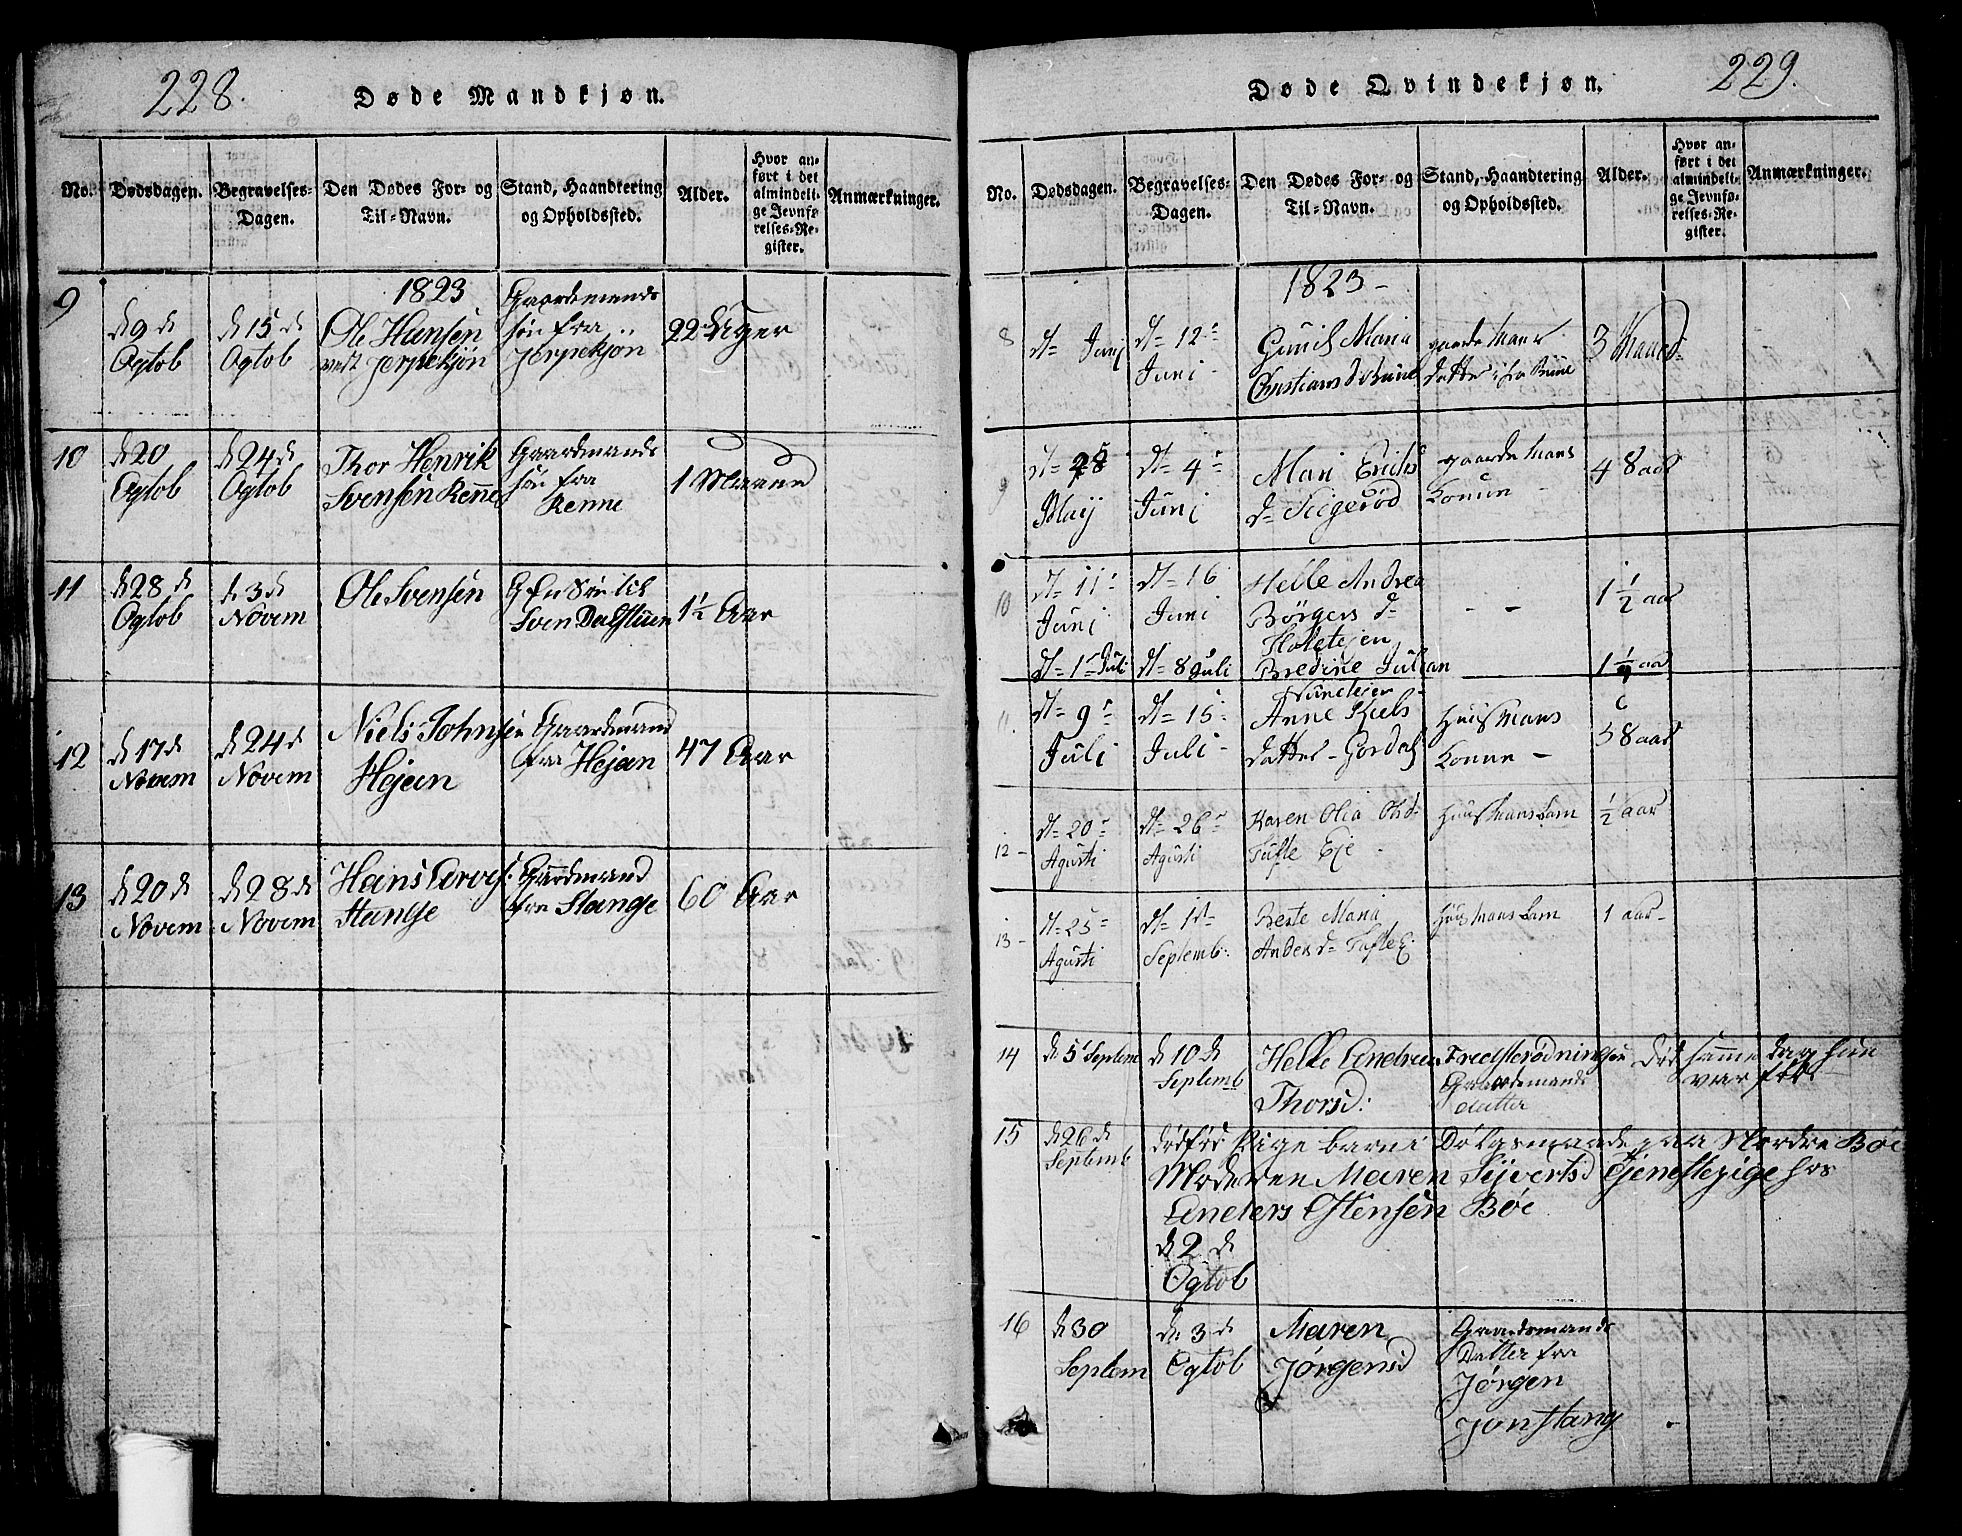 228.
Døde Mandkjøn.
No.
Dødsdagen.
Begravelses-
Dagen.
Den Dødes For- og
Til-Navn.
Stand, Haandtering
og Opholdssted.
Alder.
Hvor an-
ført i det
almindeli-
ge Jevnfø-
relses-Re-
gister.
Anmærkninger.
1823
9
d 9 d
Ogtob
d 15 d
Ogtob
Ole Hansen
vest Jerpekjøn
Gaardmands
søn fra
Jerpekjøn
22 Uger
10
d 20
Ogtob
d 24 d
Ogtob
Thor Henrik
Svensen Renne
Gaardmands
søn fra
Renne
1 Maaned
11
d 28 d
Ogtob
d 3 d
Novem
Ole Svensen
Søn til
Sven Dalstuen
1½ Aar
12
d 17 d
Novem
d 24 d
Novem
Niels Johnsen
Hejen
Gaardmand
fra Hejen
47 Aar
13
d 20 d
Novem
d 28 d
Novem
Hans Arves:
Stange
Gaardmand
fra Stange
60 Aar
229.
Døde Qvindekjøn.
No.
Dødsdagen.
Begravelses-
Dagen.
Den Dødes For- og
Til-Navn.
Stand, Haandtering
og Opholdssted.
Alder.
Hvor an-
ført i det
almindeli-
ge Jevnfø-
relses-Re-
gister.
Anmærkninger.
1823 -
8
dt= Junj
dt= 12
Junj
Maria
Christians D
gaardeMans
datter
3 Maaned
9
dt= 28
Maij
dt= 4
Junj
Mari Erichs
d=
gaardeMans
Konne -
48 aar
10
dt= 11
Junj
dt= 16
Junj
Helle Andrea
Børgers d=
Holtejen
- -
1½ aar
dt= 1 Juli
dt= 8 Juli
Bredine Julian
aar
11.
dt= 9
Juli
dt= 15
Juli -
Anne Niels
datter - Gordal
HuusMans
Konne -
58 aar
12 -
dt= 20
Agusti
dt= 26
Agusti
Karen Olia Ols d=
Tufte Eje -
HuusMansbarn
½ aar
13 -
dt= 25
Agusti
dt= 1st
Septemb:
Berte Maria
Anders d= Tufte E:
HuusMansbarn
1 aar -
14
d 5 Septem
d 10 d
Septemb
Helle Andrea
Thorsd:
Gaardemands
datter
Død samme dag hun
var født
15
d 26 d
Septemb
dødfød Pige barn i Dølgsmaal paa Nordre Bøe
Moderen Maren Sijvertsd tjenestepige hos
Anders Estensen Bøe
d 2 d
Ogtob
16
d 30
Septem
d 3 d
Ogtob
Maren
Jørgensd
Gaardsmands
Datter fra
Jørgen
Jonstang